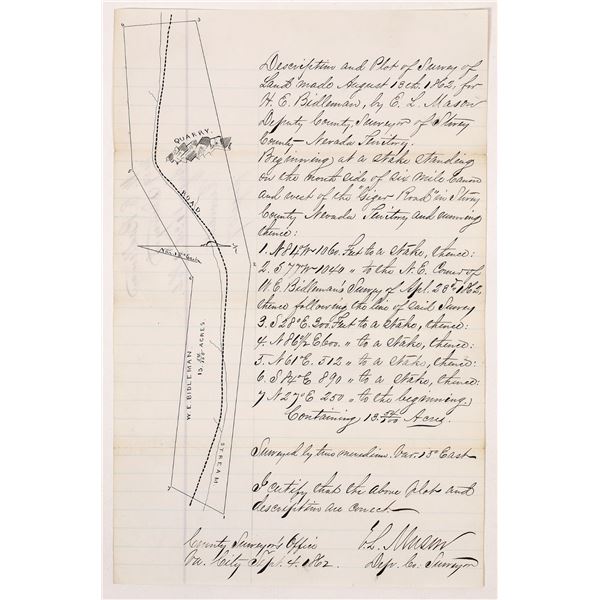 Description and Plot of Survey of
Land made August 13th. 1862, for
H. E. Bidleman, by E. L. Mason
Deputy County Surveyor of Storey
County Nevada Territory.
Beginning at a stake standing
on the north side of Six Mile Canon
and west of the "Giger Road" in Story
County Nevada Territory and running
thence:
1. N 84° W 1060. Feet to a Stake, thence:
2. S 77 W 1040 " to the N. E. Corner of
W. E. Bidleman's Survey of Apl. 28th 1862,
thence following the line of said Survey
3. S 28° E. 300. Feet to a stake, thence:
4. N 86 1/2 E 600. " to a stake, thence:
5. N 61° E. 512 " to a Stake, thence:
6. S 84° E 890 " to a Stake, thence:
7 N 27° E 250 " to the beginning.
Containing 13. 54/100 Acres.
Surveyed by true meridian. Var. 15° East
I certify that the above plot and
description are correct.
County Surveyor's Office
Va. City Sept. 4. 1862.
E. L. Mason
Dep. Co. Surveyor
QUARRY.
ROAD
W. E. BIDLEMAN
13 54/100 ACRES
STREAM